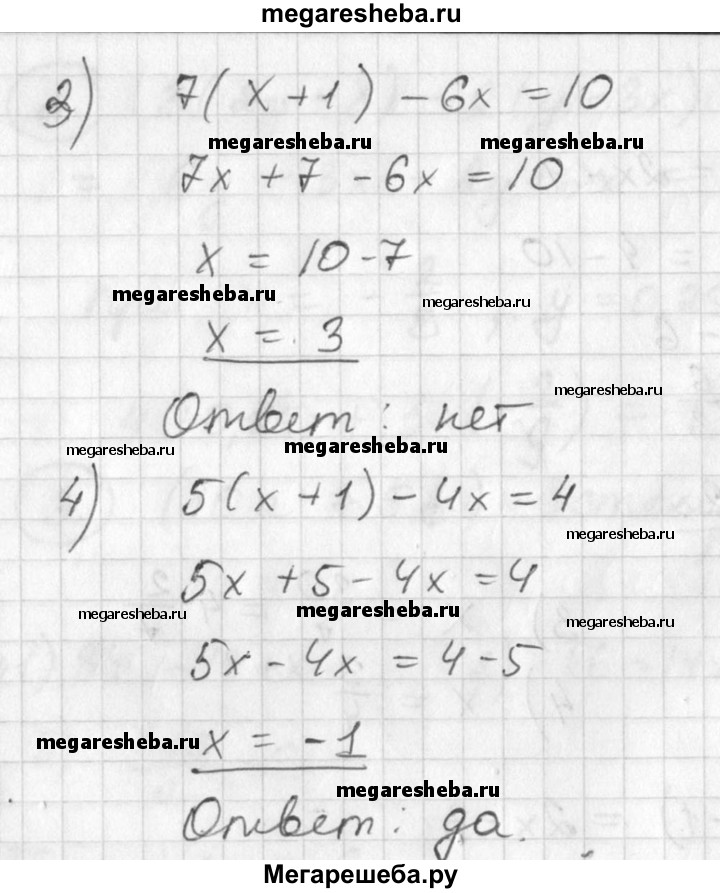 megaresheba.ru
3) 7(x+1) - 6x = 10
megaresheba.ru megaresheba.ru
7x + 7 - 6x = 10
x = 10-7
megaresheba.ru megaresheba.ru
x = 3
megaresheba.ru
Ответ: нет
megaresheba.ru megaresheba.ru
4) 5(x+1) - 4x = 4
megaresheba.ru
5x + 5 - 4x = 4
megaresheba.ru megaresheba.ru megaresheba.ru
5x - 4x = 4 - 5
megaresheba.ru x = -1
megaresheba.ru
Ответ: да.
Мегарешеба.ру